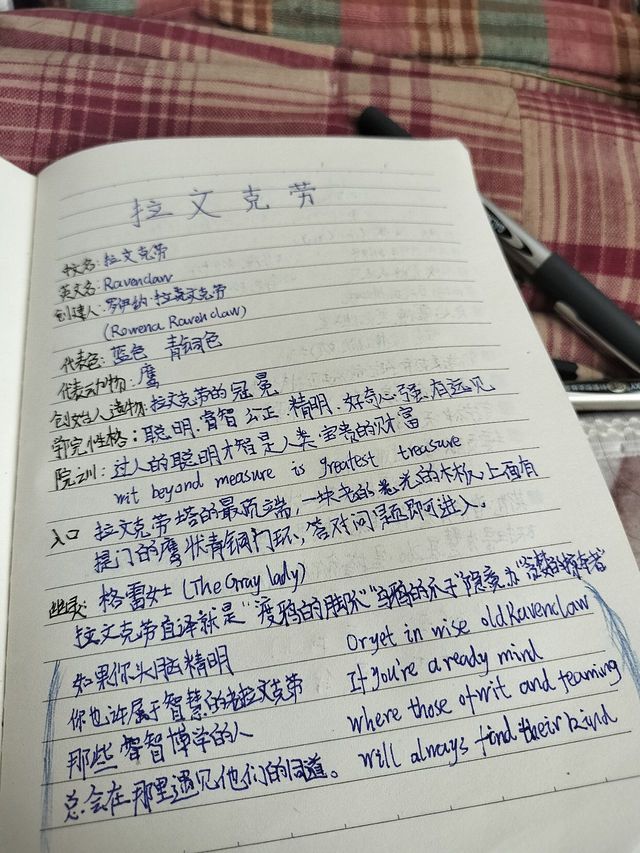 拉文克劳
校名: 拉文克劳
英文名: Ravenclaw
创建人: 罗伊纳·拉文克劳
(Rowena Ravenclaw)
代表色: 蓝色 青铜色
代表动物: 鹰
创始人遗物: 拉文克劳的冠冕
学院性格: 聪明.睿智 公正.精明.好奇心强.有远见
院训: 过人的聪明才智是人类宝贵的财富
wit beyond measure is greatest treasure
入口 拉文克劳塔的最顶端,一块老的 光的木板,上面有
门的鹰状青铜门环,答对问题即可进入。
幽灵: 格雷女士(The Gray lady)
拉文克劳直译就是“渡鸦的脚爪”“乌鸦的爪子”隐意为“智慧的 者”
如果你头脑精明 Or yet in wise old Ravenclaw
你也许属于智慧的老拉文克劳 If you're aready mind
那些睿智博学的人 where those of wit and learning
总会在那里遇见他们的同道。 will always find their kind